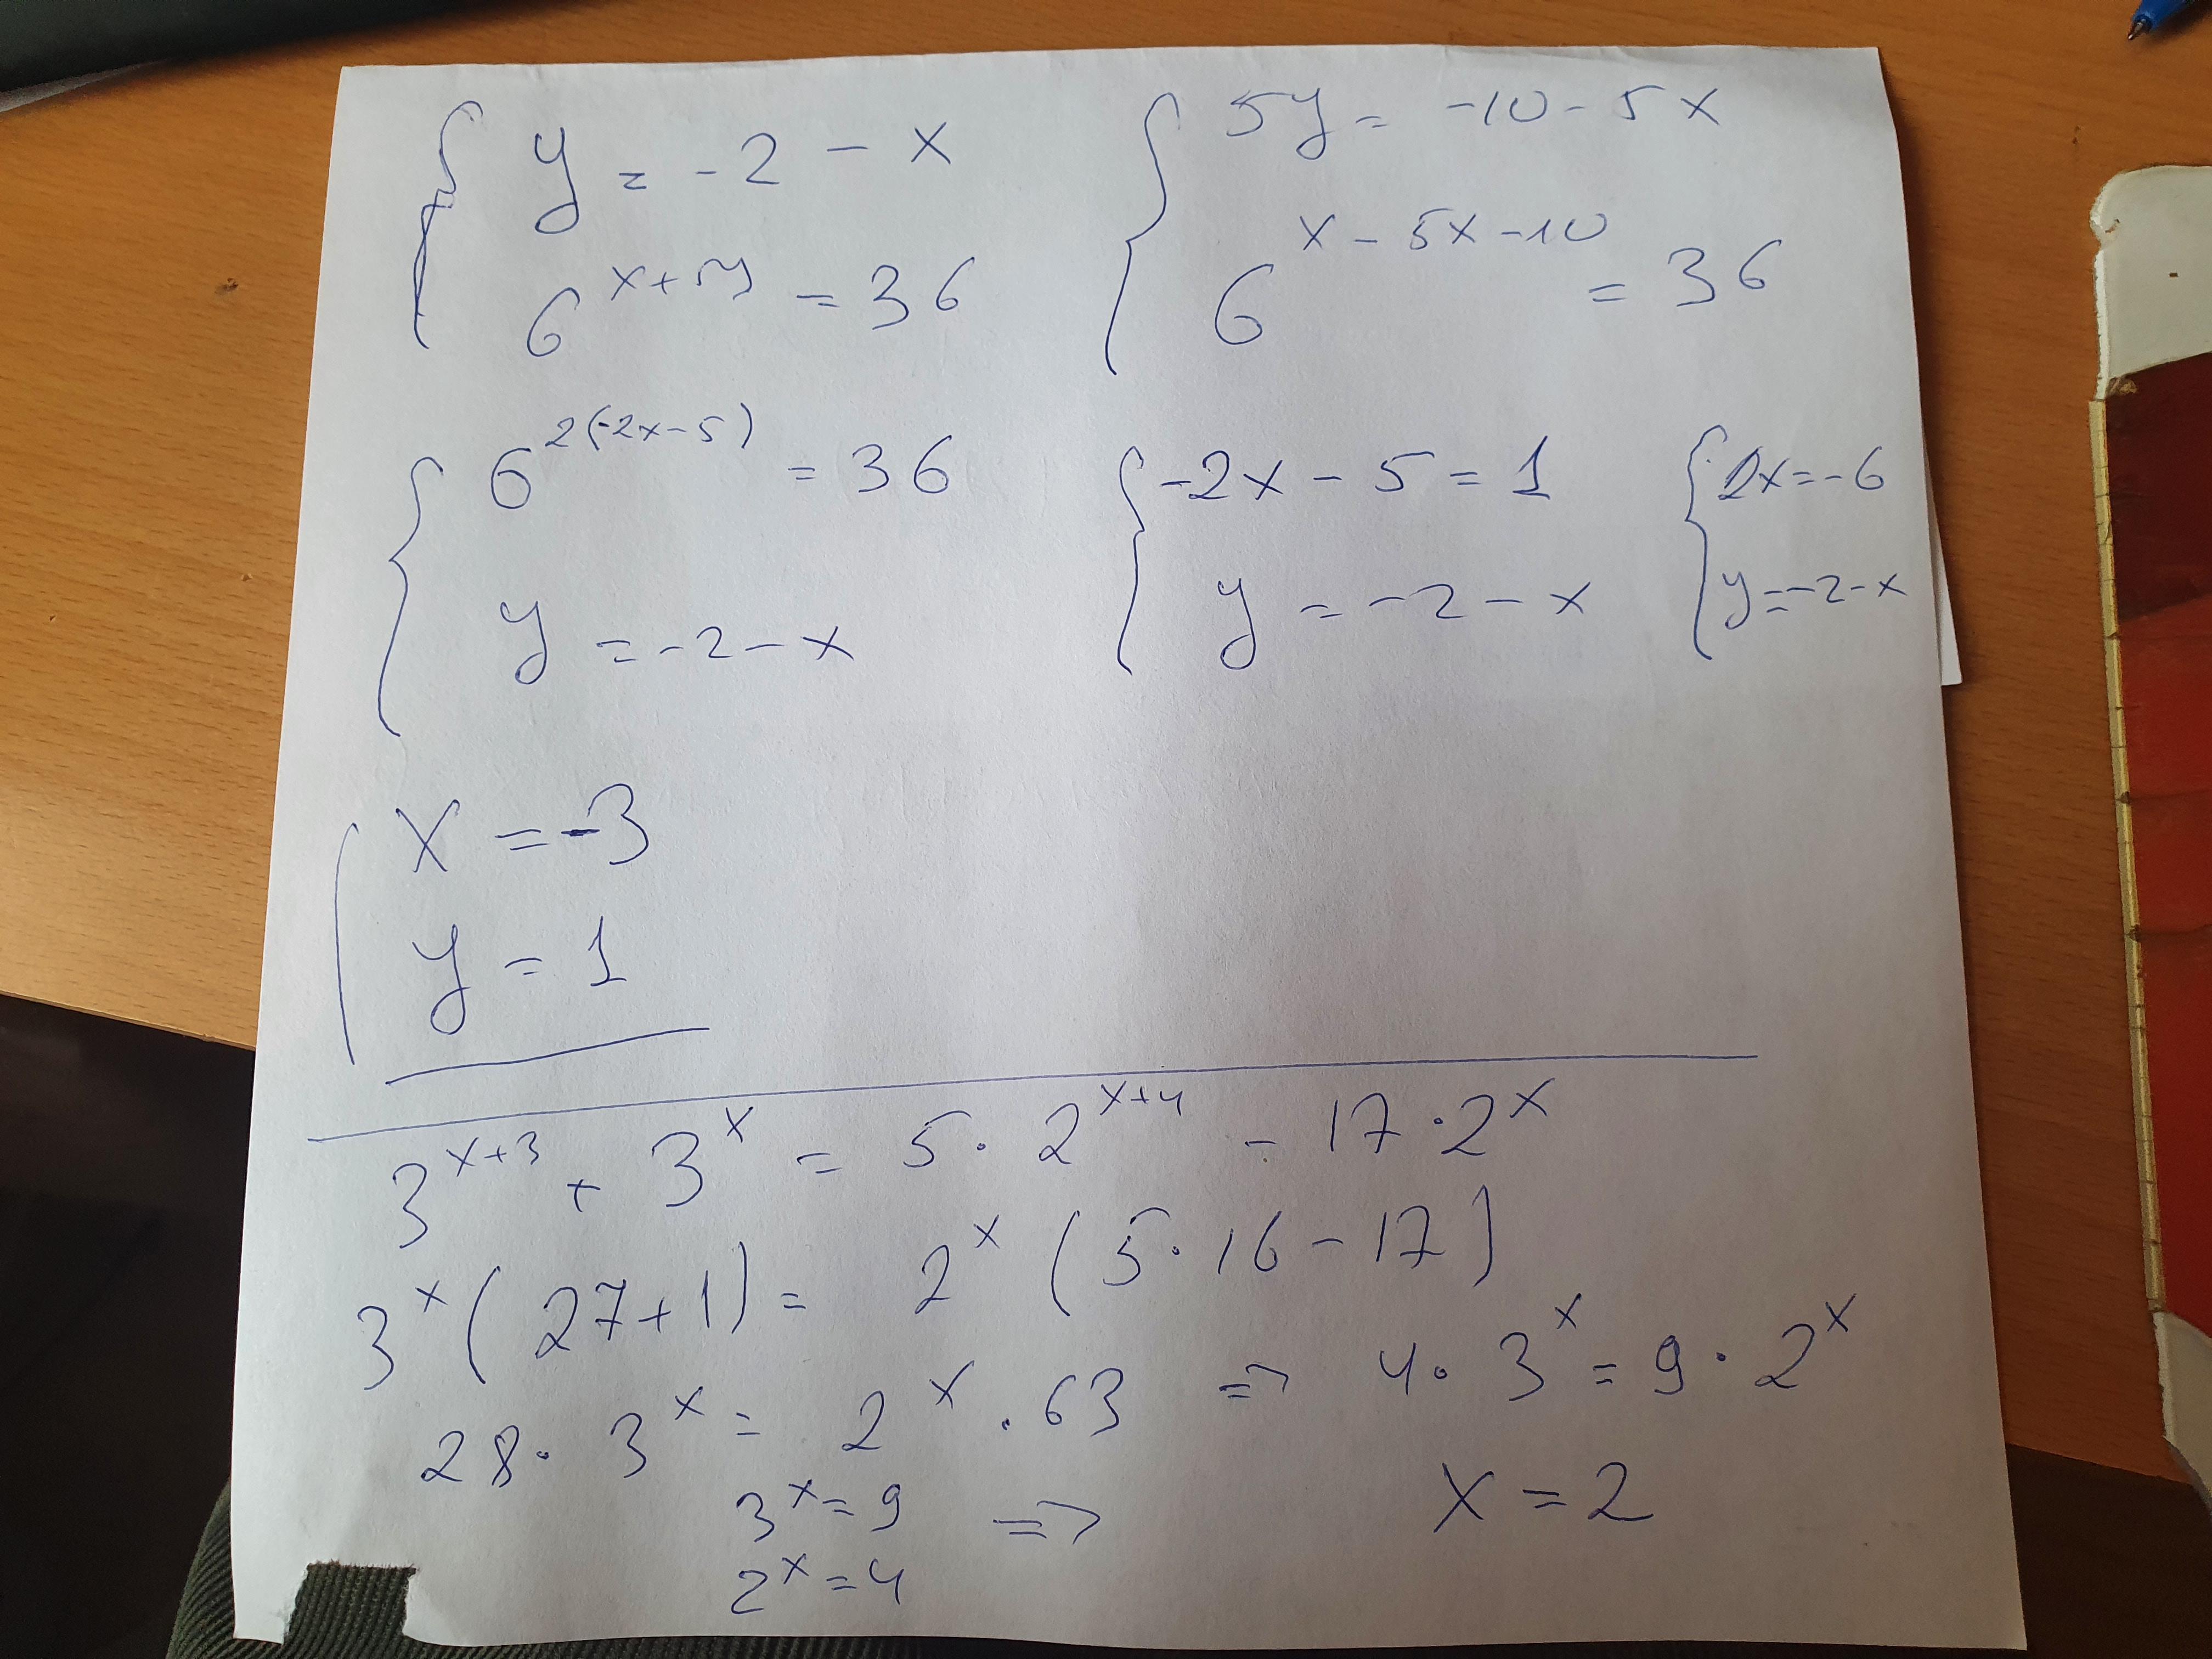 y = -2 - x
6^{x+5y} = 36
5y = -10 - 5x
6^{x - 5x - 10} = 36
6^{2(-2x-5)} = 36
y = -2 - x
-2x - 5 = 1
y = -2 - x
2x = -6
y = -2 - x
x = -3
y = 1
3^{x+3} + 3^x = 5 · 2^{x+4} - 17 · 2^x
3^x (27+1) = 2^x (5 · 16 - 17)
28 · 3^x = 2^x · 63 => 4 · 3^x = 9 · 2^x
3^x = 9 => x = 2
2^x = 4